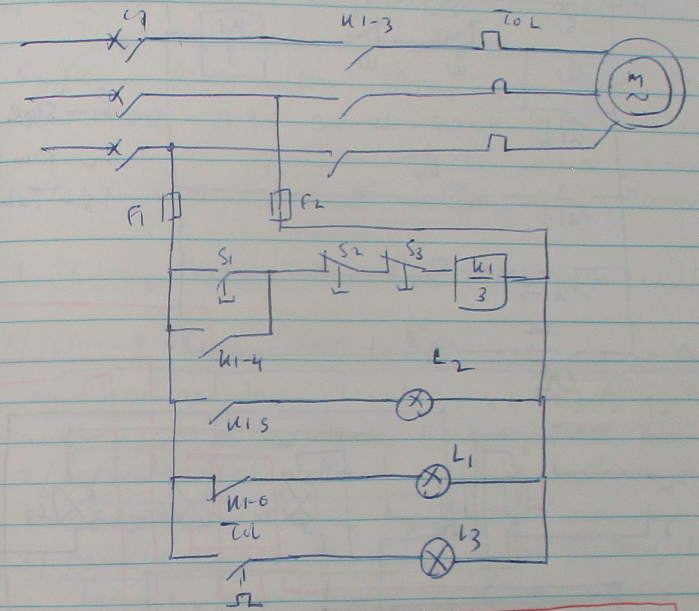 K1-3
TOL
M
~
F1
F2
S1
S2
S3
K1
3
K1-4
L2
K1-5
L1
K1-6
TOL
L3